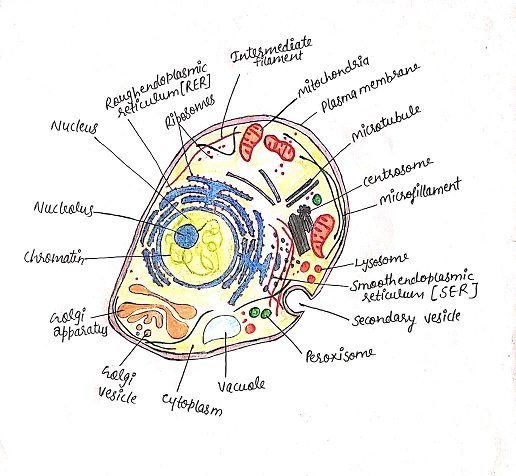 Intermediate
filament
Rough endoplasmic
reticulum [RER]
Ribosomes
Mitochondria
Plasma membrane
Nucleus
Microtubule
Centrosome
Microfillament
Nucleolus
Chromatin
Lysosome
Smooth endoplasmic
reticulum [SER]
Secondary vesicle
Golgi
apparatus
Peroxisome
Golgi
vesicle
Cytoplasm
Vacuole